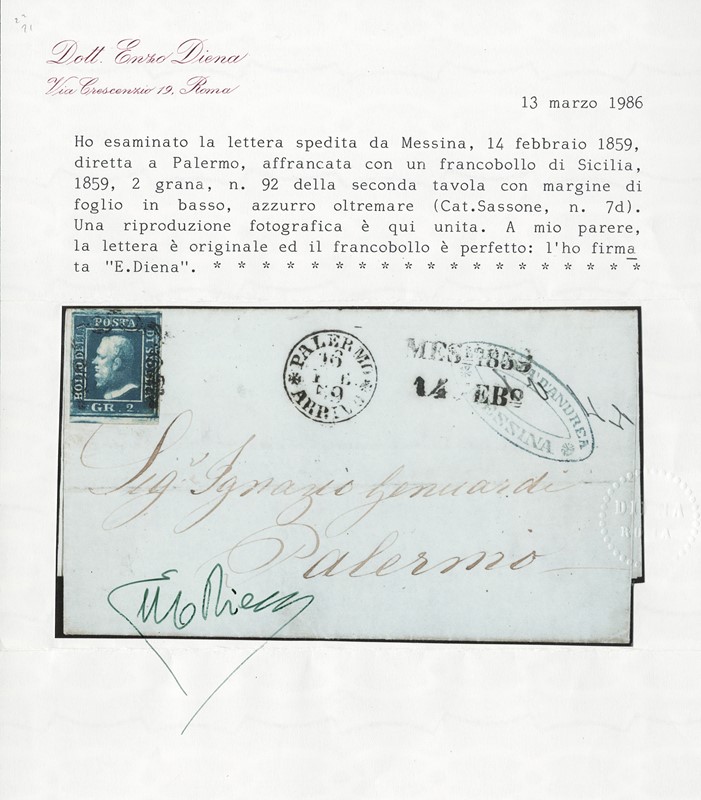 Dott. Enzo Diena
Via Crescenzio 19, Roma
13 marzo 1986
Ho esaminato la lettera spedita da Messina, 14 febbraio 1859,
diretta a Palermo, affrancata con un francobollo di Sicilia,
1859, 2 grana, n. 92 della seconda tavola con margine di
foglio in basso, azzurro oltremare (Cat.Sassone, n. 7d).
Una riproduzione fotografica è qui unita. A mio parere,
la lettera è originale ed il francobollo è perfetto: l'ho firma
ta "E.Diena". * * * * * * * * * * * * * * * * * * *
BOLLO DELLA
POSTA
DI SICILIA
GR. 2
PALERMO
16
FEB
59
ARRIVO
MESa 1859
14 FEBo
D'ANDREA
MESSINA
Sig. Ignazio Genuardi
Palermo
DIENA
ROMA